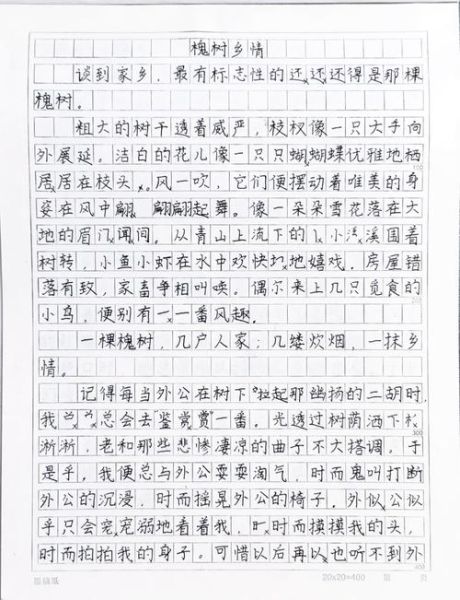 槐树乡情
谈到家乡，最有标志性的还还还得是那棵
槐树。
粗大的树干透着威严，枝杈像一只大手向
外展延。洁白的花儿像一只只蝴蝴蝶优雅地栖
居居在枝头，。风一吹，它们便摆动着唯美的身
姿在风中翩 翩翩起舞。像一朵朵雪花落在大
地的眉门闻间。从青山上流下的小溪围着
树转，小鱼小虾在水中欢快地嬉戏。房屋错
落有致，家畜争相叫唤。偶尔来上几只觅食的
小鸟，便别有一一番风趣。
一棵槐树，几户人家；几缕炊烟，一抹乡
情。
记得每当外公在树下拉起那幽扬的二胡时，
我总会去鉴赏赏一番。光透过树荫洒下
淅淅，老和那些悲惨凄凉的曲子不大搭调。于
是乎，我便总与外公耍耍淘气，时而鬼叫打断
外公的沉浸，时而摇晃外公的椅子。外似公似
乎只会宠宠弱地看着我，时而摸摸我的头，
时而拍拍我的身子。可惜以后再以也听不到外
20×20=400 第 页